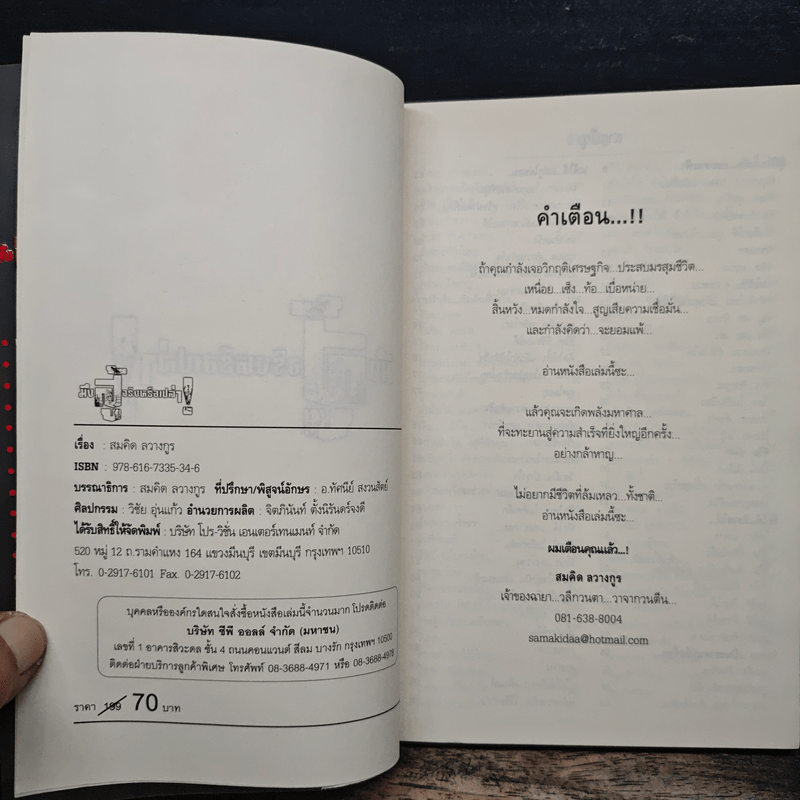 มัน จริงหรือเปล่า
เรื่อง : สมคิด ลวางกูร
ISBN : 978-616-7335-34-6
บรรณาธิการ : สมคิด ลวางกูร ที่ปรึกษา/พิสูจน์อักษร : อ.ทัศนีย์ สงวนสัตย์
ศิลปกรรม : วิชัย อุ่นแก้ว อำนวยการผลิต : จิตภินันท์ ตั้งนิรันดร์จงดี
ได้รับสิทธิ์ให้จัดพิมพ์ : บริษัท โปร-วิชั่น เอนเตอร์เทนเมนท์ จำกัด
520 หมู่ 12 ถ.รามคำแหง 164 แขวงมีนบุรี เขตมีนบุรี กรุงเทพฯ 10510
โทร. 0-2917-6101 Fax. 0-2917-6102
บุคคลหรือองค์กรใดสนใจสั่งซื้อหนังสือเล่มนี้จำนวนมาก โปรดติดต่อ
บริษัท ซีพี ออลล์ จำกัด (มหาชน)
เลขที่ 1 อาคารสิวะดล ชั้น 4 ถนนคอนแวนต์ สีลม บางรัก กรุงเทพฯ 10500
ติดต่อฝ่ายบริการลูกค้าพิเศษ โทรศัพท์ 08-3688-4971 หรือ 08-3688-4978
ราคา 199 70 บาท
คำเตือน...!!
ถ้าคุณกำลังเจอวิกฤติเศรษฐกิจ...ประสบมรสุมชีวิต...
เหนื่อย...เซ็ง...ท้อ...เบื่อหน่าย...
สิ้นหวัง...หมดกำลังใจ...สูญเสียความเชื่อมั่น...
และกำลังคิดว่า...จะยอมแพ้...
อ่านหนังสือเล่มนี้ซะ...
แล้วคุณจะเกิดพลังมหาศาล...
ที่จะทะยานสู่ความสำเร็จที่ยิ่งใหญ่อีกครั้ง...
อย่างกล้าหาญ...
ไม่อยากมีชีวิตที่ล้มเหลว...ทั้งชาติ...
อ่านหนังสือเล่มนี้ซะ...
ผมเตือนคุณแล้ว...!
สมคิด ลวางกูร
เจ้าของฉายา...วลีกวนตา...วาจากวนตีน...
081-638-8004
samakidaa@hotmail.com